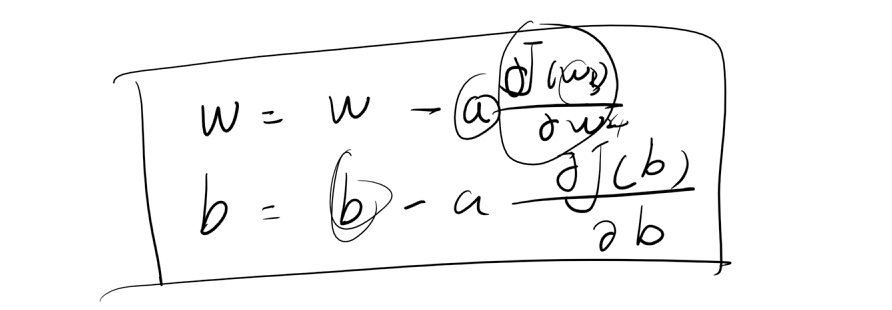 w = w - a ∂J(w)/∂w
b = b - a ∂J(b)/∂b